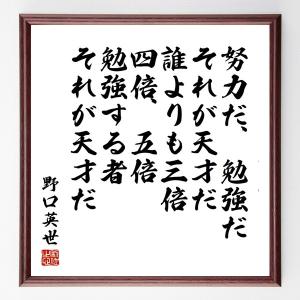 努力だ、勉強だ
それが天才だ
誰よりも三倍
四倍、五倍
勉強する者
それが天才だ
野口英世